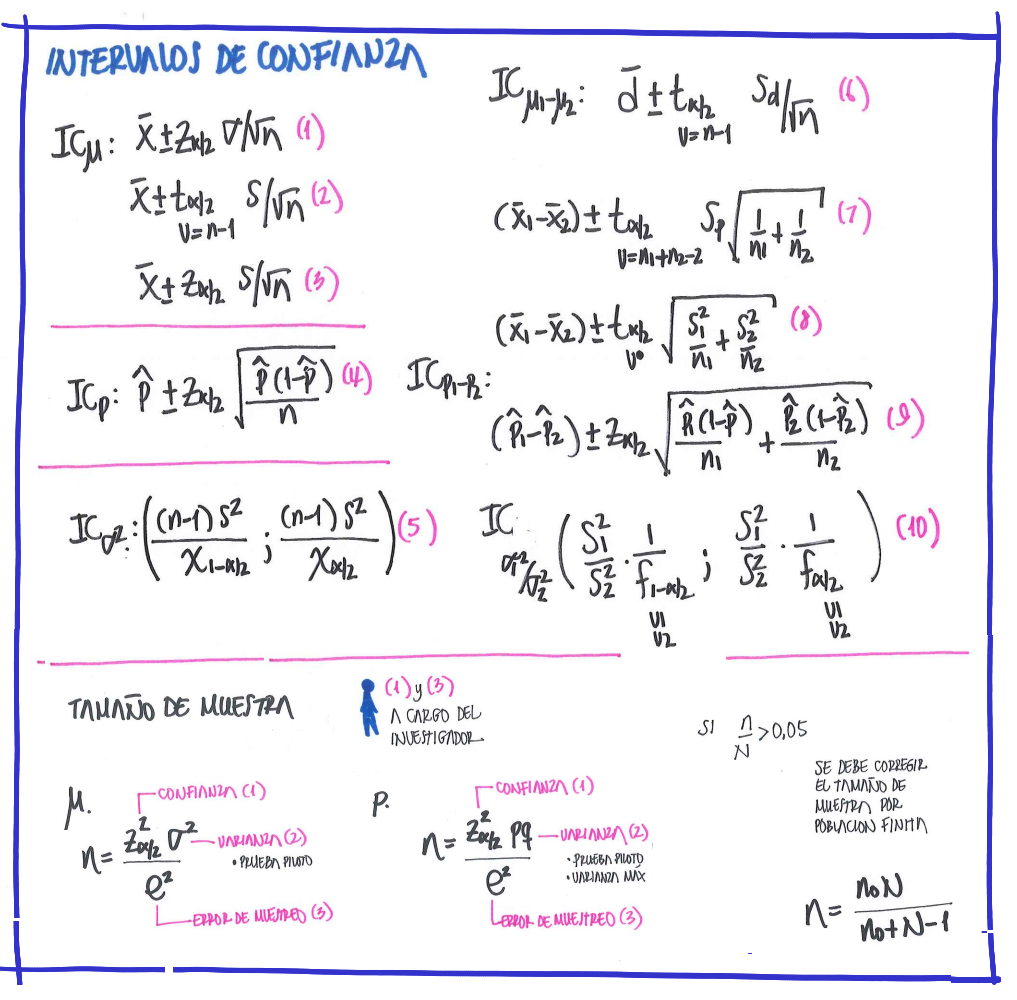 INTERVALOS DE CONFIANZA
ICμ: x̄ ± zα/2 σ/√n (1)
x̄ ± tα/2 S/√n (2)
v=n-1
x̄ ± zα/2 S/√n (3)
ICp: p̂ ± zα/2 √(p̂(1-p̂)/n) (4)
ICσ²: ((n-1)S²/χ1-α/2 ; (n-1)S²/χα/2) (5)
ICμ1-μ2: d̄ ± tα/2 Sd/√n (6)
v=n-1
(x̄1-x̄2) ± tα/2 Sp √(1/n1 + 1/n2) (7)
v=n1+n2-2
(x̄1-x̄2) ± tα/2 √(S1²/n1 + S2²/n2) (8)
v*
ICP1-P2:
(p̂1-p̂2) ± zα/2 √(p̂1(1-p̂)/n1 + p̂2(1-p̂2)/n2) (9)
IC σ1²/σ2² (S1²/S2² · 1/f1-α/2 ; S1²/S2² · 1/fα/2) (10)
v1 v1
v2 v2
TAMAÑO DE MUESTRA
(1) y (3)
A CARGO DEL
INVESTIGADOR
μ.
CONFIANZA (1)
n= z²α/2 σ² / e²
VARIANZA (2)
• PRUEBA PILOTO
ERROR DE MUESTREO (3)
P.
CONFIANZA (1)
n= z²α/2 pq / e²
VARIANZA (2)
• PRUEBA PILOTO
• VARIANZA MÁX
ERROR DE MUESTREO (3)
SI n/N >0,05
SE DEBE CORREGIR
EL TAMAÑO DE
MUESTRA POR
POBLACION FINITA
n= n0N / n0+N-1